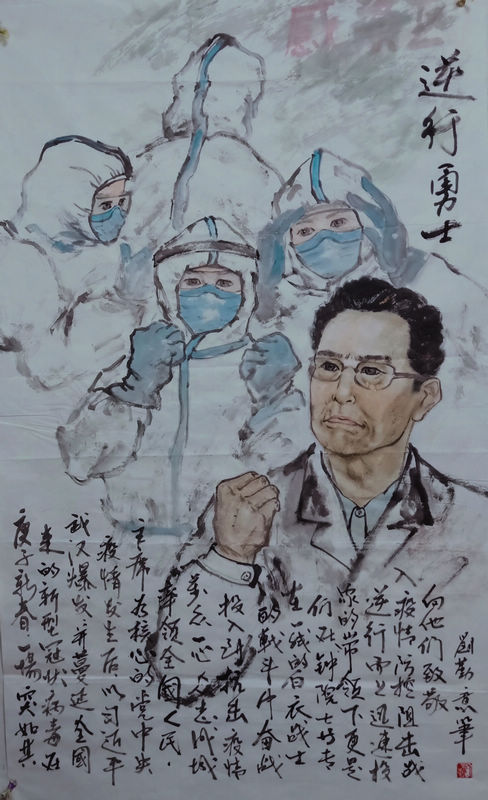 逆行勇士
庚子新春、一場突如其
来的新型冠状病毒在
武汉爆发,并蔓延全国
疫情发生后,以习近平
主席为核心的党中央
率领全国人民,
万众一心众志成城
投入到抗击疫情
的战斗中奋战
在一线的白衣战士
们在钟院士等专
家的带领下更是
逆行而上迅速投
入疫情防控阻击战
向他们致敬
劉勤 筆